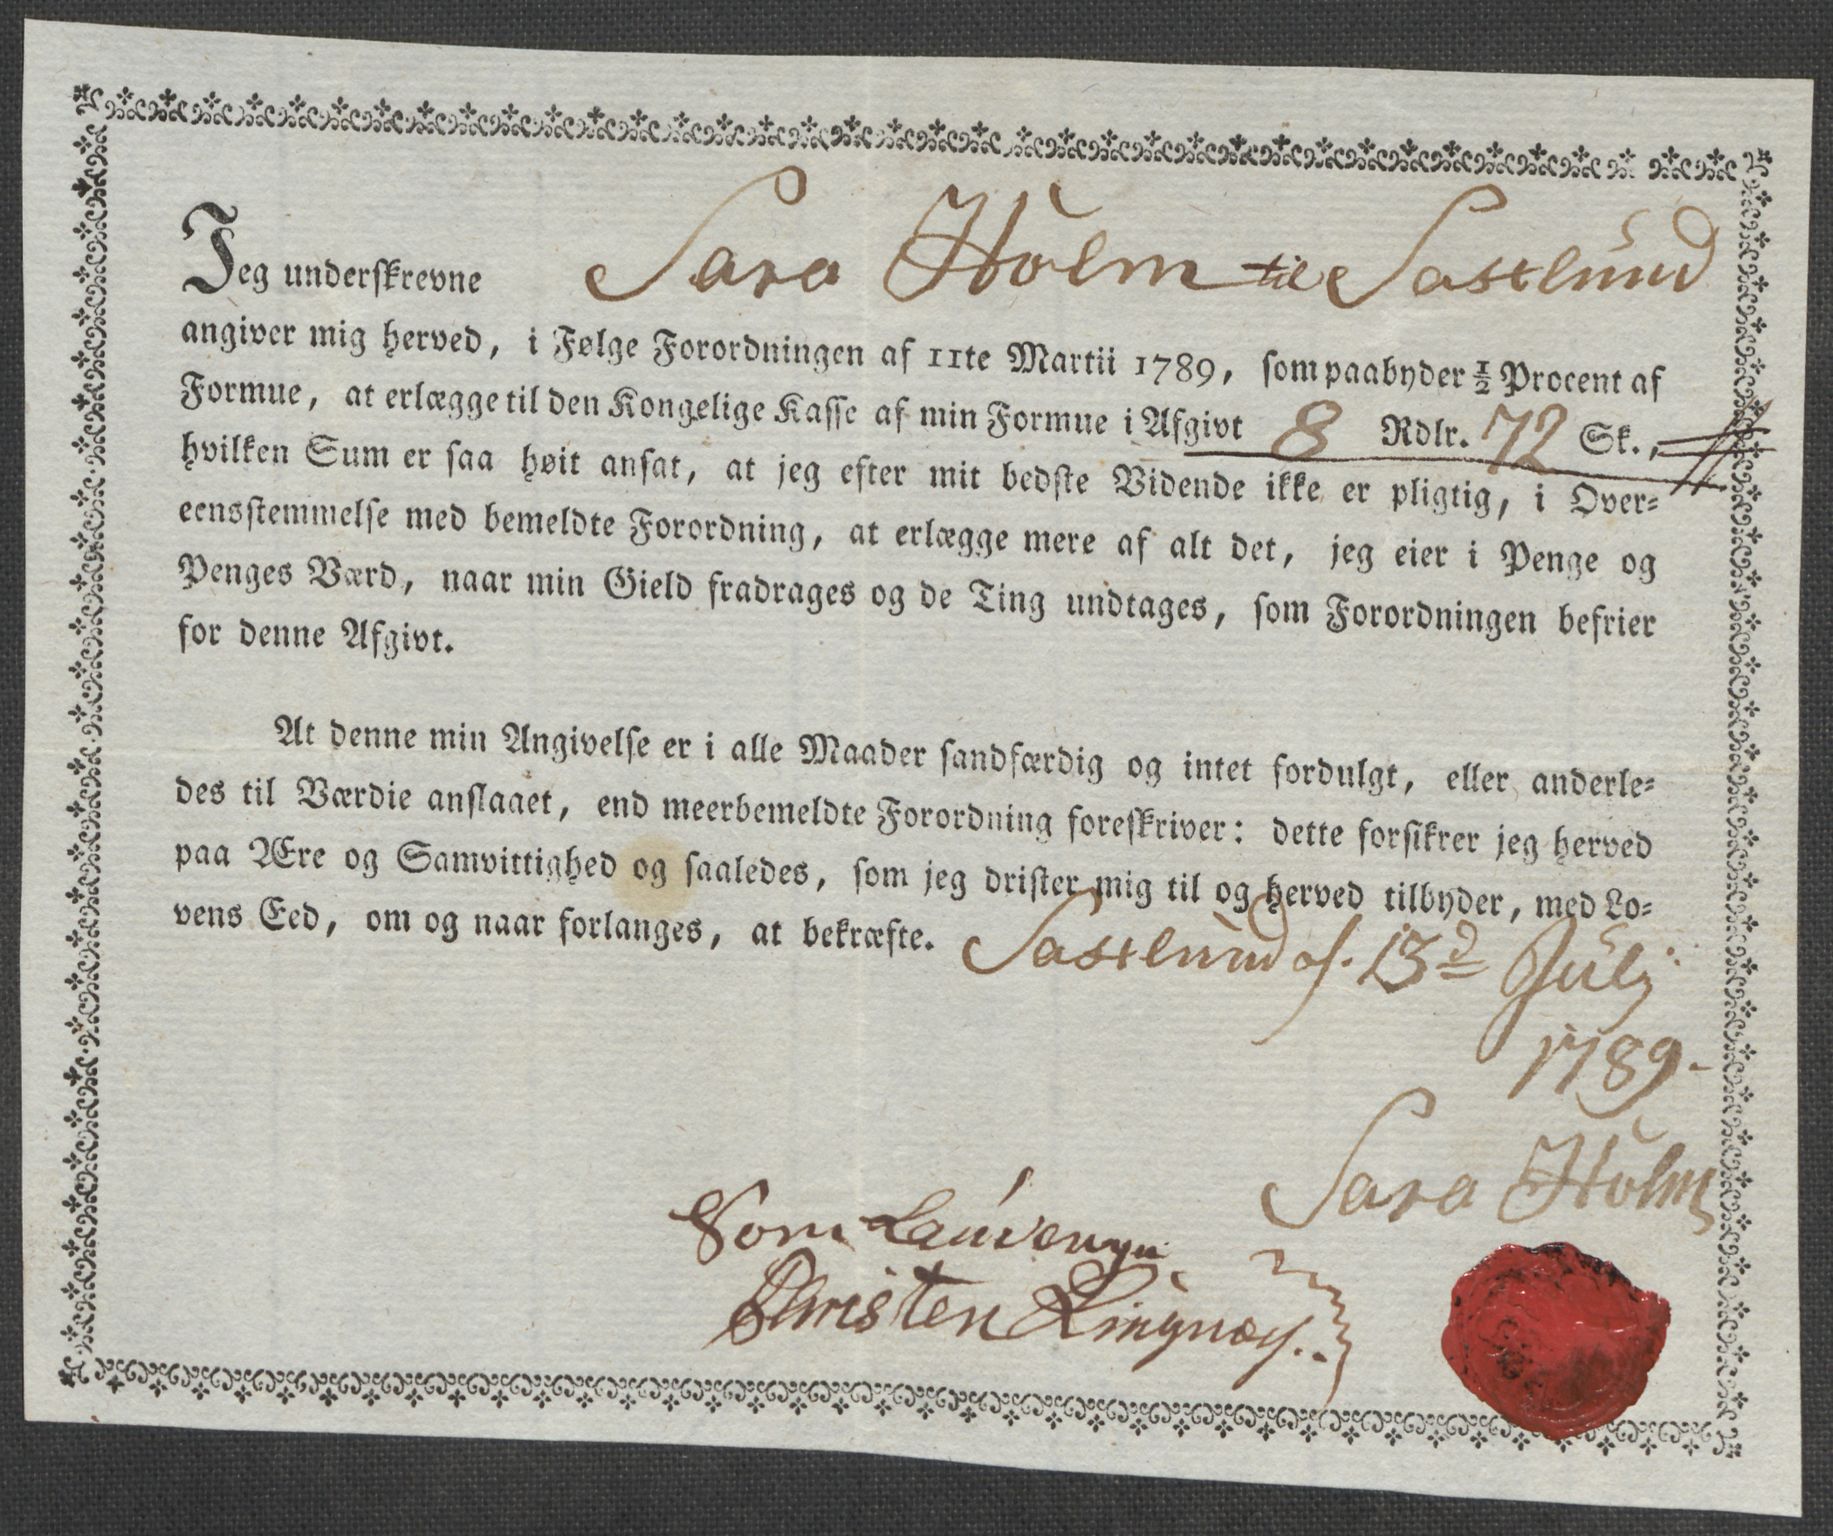 Jeg underskrevne Sara Holm til Sastlund
angiver mig herved, i Følge Forordningen af 11te Martii 1789, som paabyder ½ Procent af
Formue, at erlægge til den Kongelige Kasse af min Formue i Afgivt 8 Rdlr. 72 Sk.,
hvilken Sum er saa høit ansat, at jeg efter mit bedste Vidende ikke er pligtig, i Over=
eensstemmelse med bemeldte Forordning, at erlægge mere af alt det, jeg eier i Penge og
Penges Værd, naar min Gield fradrages og de Ting undtages, som Forordningen befrier
for denne Afgivt.
At denne min Angivelse er i alle Maader sandfærdig og intet fordulgt, eller anderle=
des til Værdie anslaaet, end meerbemeldte Forordning foreskriver: dette forsikrer jeg herved
paa Ære og Samvittighed og saaledes, som jeg drister mig til og herved tilbyder, med Lo=
vens Eed, om og naar forlanges, at bekræfte. Sastlund d. 13d Julj
1789.
Sara Holm
Som Lauværge
Christen Ringnæs.